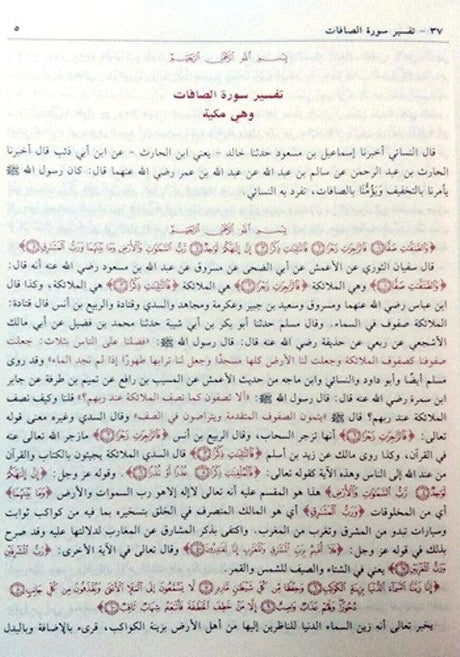 ٣٧ - تفسير سورة الصافات ٥
بِسْمِ اللهِ الرَّحْمَنِ الرَّحِيمِ
تفسير سورة الصافات
وهى مكية
قال النسائي أخبرنا إسماعيل بن مسعود حدثنا خالد - يعني ابن الحارث - عن ابن أبي ذئب قال أخبرنا
الحارث بن عبد الرحمن عن سالم بن عبد الله عن عبد الله بن عمر رضي الله عنهما قال: كان رسول الله ﷺ
يأمرنا بالتخفيف وَيَؤُمُّنَا بالصافات، تفرد به النسائي.
بِسْمِ اللهِ الرَّحْمَنِ الرَّحِيمِ
﴿وَالصَّافَّاتِ صَفًّا ① فَالزَّاجِرَاتِ زَجْرًا ② فَالتَّالِيَاتِ ذِكْرًا ③ إِنَّ إِلَهَكُمْ لَوَاحِدٌ ④ رَبُّ السَّمَاوَاتِ وَالْأَرْضِ وَمَا بَيْنَهُمَا وَرَبُّ الْمَشَارِقِ ⑤﴾
قال سفيان الثوري عن الأعمش عن أبي الضحى عن مسروق عن عبد الله بن مسعود رضي الله عنه أنه قال:
﴿وَالصَّافَّاتِ صَفًّا ①﴾ وهي الملائكة ﴿فَالزَّاجِرَاتِ زَجْرًا ②﴾ هي الملائكة ﴿فَالتَّالِيَاتِ ذِكْرًا ③﴾ هي الملائكة، وكذا قال
ابن عباس رضي الله عنهما ومسروق وسعيد بن جبير وعكرمة ومجاهد والسدي وقتادة والربيع بن أنس قال قتادة:
الملائكة صفوف في السماء. وقال مسلم حدثنا أبو بكر بن أبي شيبة حدثنا محمد بن فضيل عن أبي مالك
الأشجعي عن ربعي عن حذيفة رضي الله عنه قال: قال رسول الله ﷺ: «فضلنا على الناس بثلاث: جعلت
صفوفنا كصفوف الملائكة وجعلت لنا الأرض كلها مسجدًا وجعل لنا ترابها طهورًا إذا لم نجد الماء» وقد روى
مسلم أيضًا وأبو داود والنسائي وابن ماجه من حديث الأعمش عن المسيب بن رافع عن تميم بن طرفة عن جابر
ابن سمرة رضي الله عنه قال: قال رسول الله ﷺ: «ألا تصفون كما تصف الملائكة عند ربهم؟» قلنا وكيف تصف
الملائكة عند ربهم؟ قال ﷺ «يتمون الصفوف المتقدمة ويتراصون في الصف» وقال السدي وغيره معنى قوله
تعالى: ﴿فَالزَّاجِرَاتِ زَجْرًا ②﴾ أنها تزجر السحاب، وقال الربيع بن أنس ﴿فَالزَّاجِرَاتِ زَجْرًا ②﴾ مازجر الله تعالى عنه
في القرآن، وكذا روى مالك عن زيد بن أسلم ﴿فَالتَّالِيَاتِ ذِكْرًا ③﴾ قال السدي الملائكة يجيئون بالكتاب والقرآن
من عند الله إلى الناس وهذه الآية كقوله تعالى: ﴿فَالْمُلْقِيَاتِ ذِكْرًا ⑤ عُذْرًا أَوْ نُذْرًا ⑥﴾. وقوله عز وجل: ﴿إِنَّ إِلَهَكُمْ
لَوَاحِدٌ ④ رَبُّ السَّمَاوَاتِ وَالْأَرْضِ﴾ هذا هو المقسم عليه أنه تعالى لاإله إلاهو رب السموات والأرض ﴿وَمَا بَيْنَهُمَا﴾
أي من المخلوقات ﴿وَرَبُّ الْمَشَارِقِ ⑤﴾ أي هو المالك المتصرف في الخلق بتسخيره بما فيه من كواكب ثوابت
وسيارات تبدو من المشرق وتغرب من المغرب. واكتفى بذكر المشارق عن المغارب لدلالتها عليه وقد صرح
بذلك في قوله عز وجل: ﴿فَلَا أُقْسِمُ بِرَبِّ الْمَشَارِقِ وَالْمَغَارِبِ إِنَّا لَقَادِرُونَ ④⓪﴾ وقال تعالى في الآية الأخرى: ﴿رَبُّ الْمَشْرِقَيْنِ
وَرَبُّ الْمَغْرِبَيْنِ﴾ يعني في الشتاء والصيف للشمس والقمر.
﴿إِنَّا زَيَّنَّا السَّمَاءَ الدُّنْيَا بِزِينَةٍ الْكَوَاكِبِ ⑥ وَحِفْظًا مِنْ كُلِّ شَيْطَانٍ مَارِدٍ ⑦ لَا يَسَّمَّعُونَ إِلَى الْمَلَإِ الْأَعْلَى وَيُقْذَفُونَ مِنْ كُلِّ جَانِبٍ ⑧
دُحُورًا وَلَهُمْ عَذَابٌ وَاصِبٌ ⑨ إِلَّا مَنْ خَطِفَ الْخَطْفَةَ فَأَتْبَعَهُ شِهَابٌ ثَاقِبٌ ⑩﴾
يخبر تعالى أنه زين السماء الدنيا للناظرين إليها من أهل الأرض بزينة الكواكب، قرىء بالإضافة وبالبدل